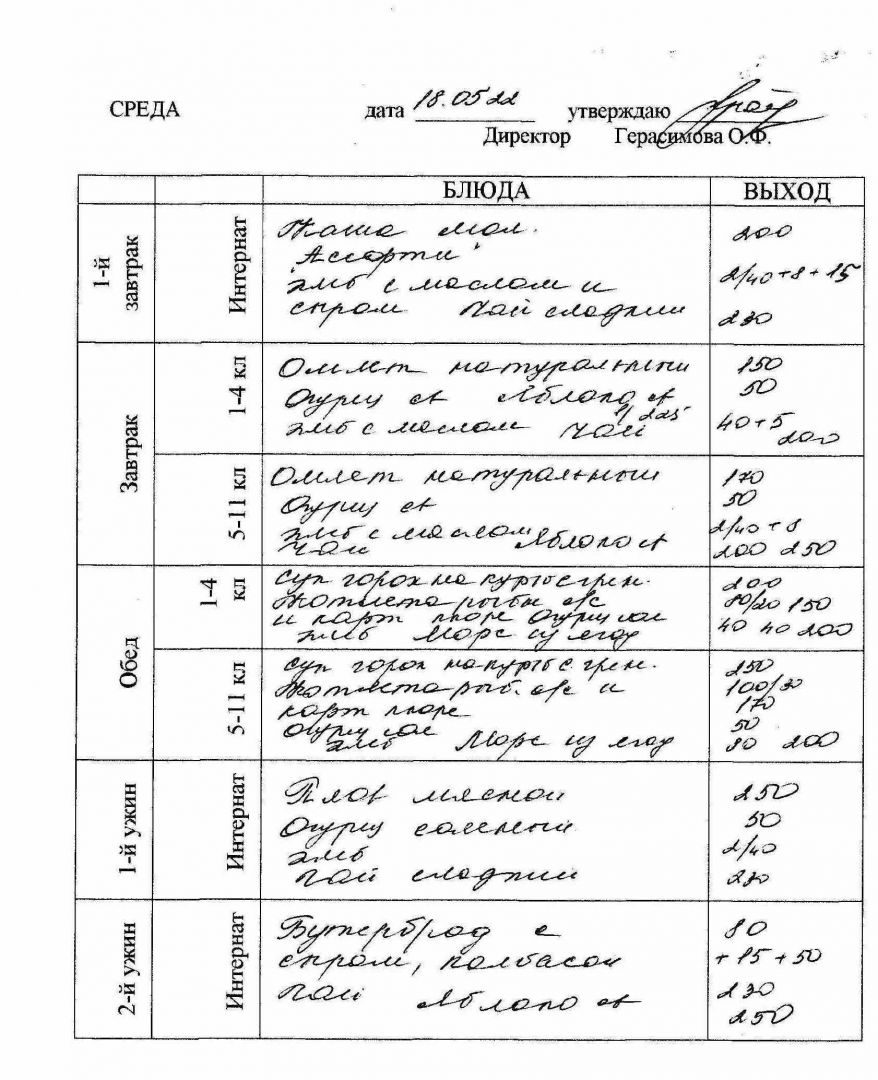 СРЕДА дата 18.05 22 утверждаю
Директор Герасимова О.Ф.
БЛЮДА ВЫХОД
1-й завтрак Интернат
Каша мол. 200
"Ассорти"
хлеб с маслом и 2/40+8+15
сыром Чай сладкий 230
Завтрак 1-4 кл
Омлет натуральный 150
Огурец св Яблоко св 50
1/225
хлеб с маслом Чай 40+5 200
5-11 кл
Омлет натуральный 170
Огурец св 50
хлеб с маслом 2/40+8
Чай Яблоко св 200 250
Обед 1-4 кл
Суп горох на курбс грен. 200
Котлета рыбн с/с 80/20 150
и карт пюре Огурец сол 40 40 200
хлеб Морс из ягод
5-11 кл
Суп горох на курбс грен. 250
Котлета рыб. с/с и 100/30
карт пюре 170
Огурец сол 50
хлеб Морс из ягод 80 200
1-й ужин Интернат
Плов мясной 250
Огурец соленый 50
хлеб 2/40
Чай сладкий 230
2-й ужин Интернат
Бутерброд с 80
сыром, колбасой +15+50
Чай Яблоко св 230
250